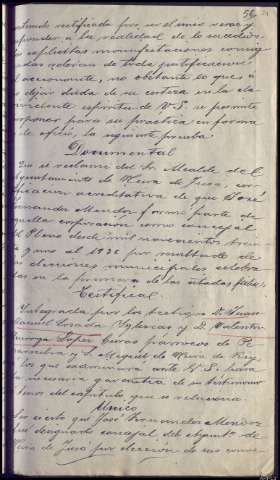 56
rectificado por
a la realidad de lo sucedido,
explícitas manifestaciones consig-
nadas de toda justificación
no obstante lo que a
dejar duda de su certeza en la cla-
espíritu de V.S. se permite
proponer para su práctica en forma
de oficio, la siguiente prueba
Documental
Que se reclame del Sr Alcalde del
Ayuntamiento de Neira de Jusá, cer-
tificación acreditativa de que José
Fernández Méndez formó parte de
aquella corporación como concejal
el Pleno desde mil novecientos trein-
ta y uno al 1936 por resultado de
las elecciones municipales celebra-
das en la primera de las citadas fechas.
Testifical
Integrada por los testigos D. Juan
Manuel Losada Iglesias y D. Valentin
López, Curas párrocos de
y S. Miguel de Neira de Rey
los que examinará ante V.S. para
la necesaria garantía de su testimonio
a tenor del capítulo que se relaciona.
Único
Ser cierto que José Fernández Méndez
fué designado concejal del Ayunto de
Neira de Jusá por elección de sus conve-